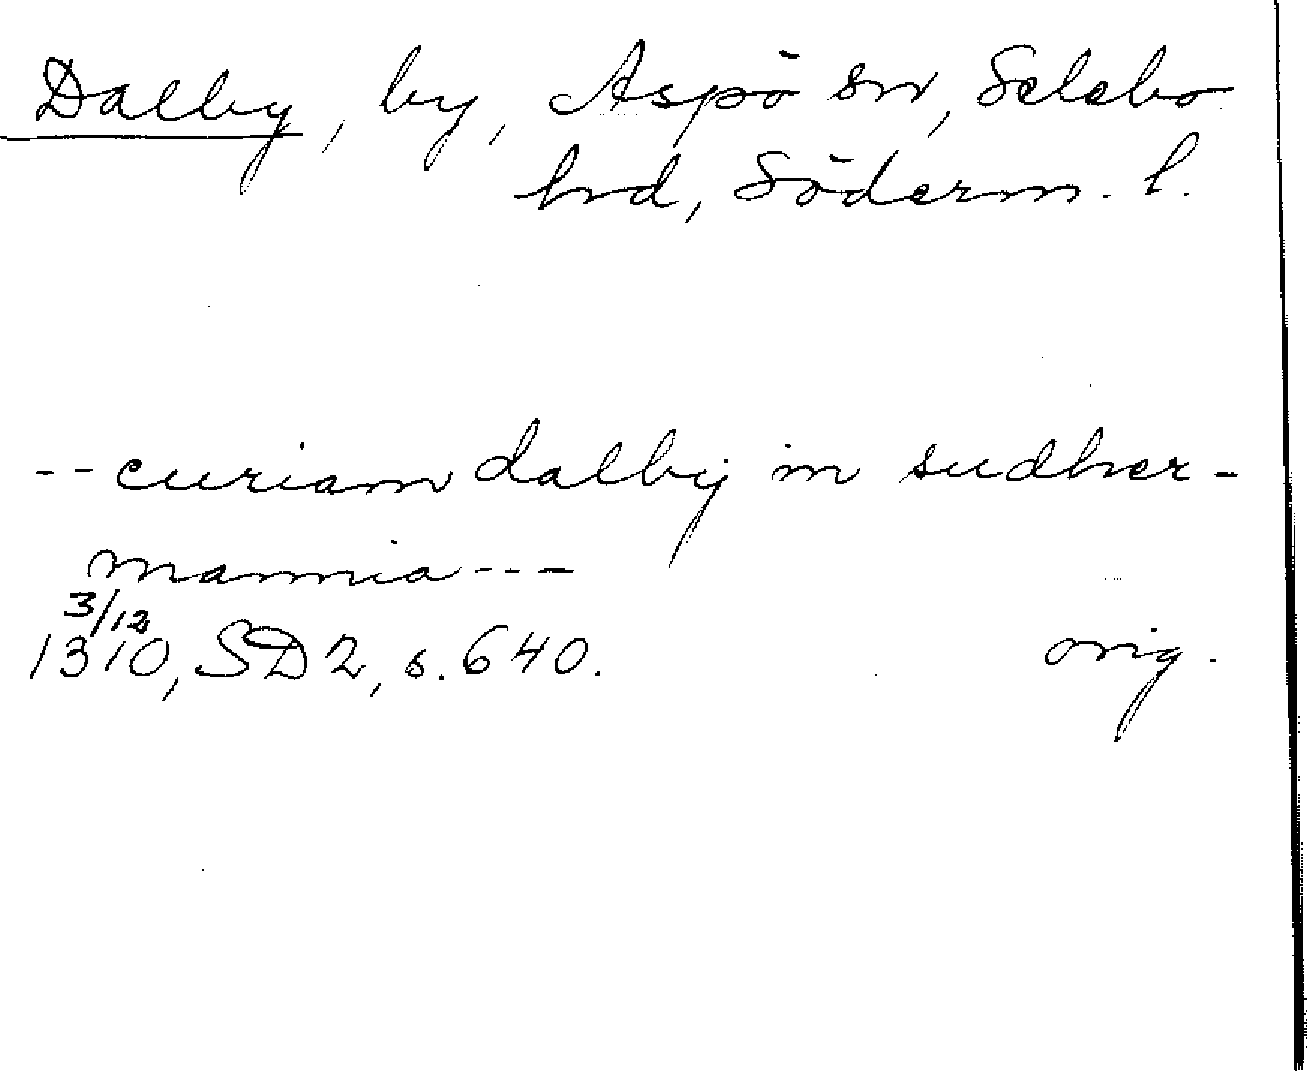 Dalby, by, Aspö sn, Selebo
hd, Söderm. l.
-- curiam dalby in sudher-
mannia ---
3/12
1310, SD 2, s. 640. orig.